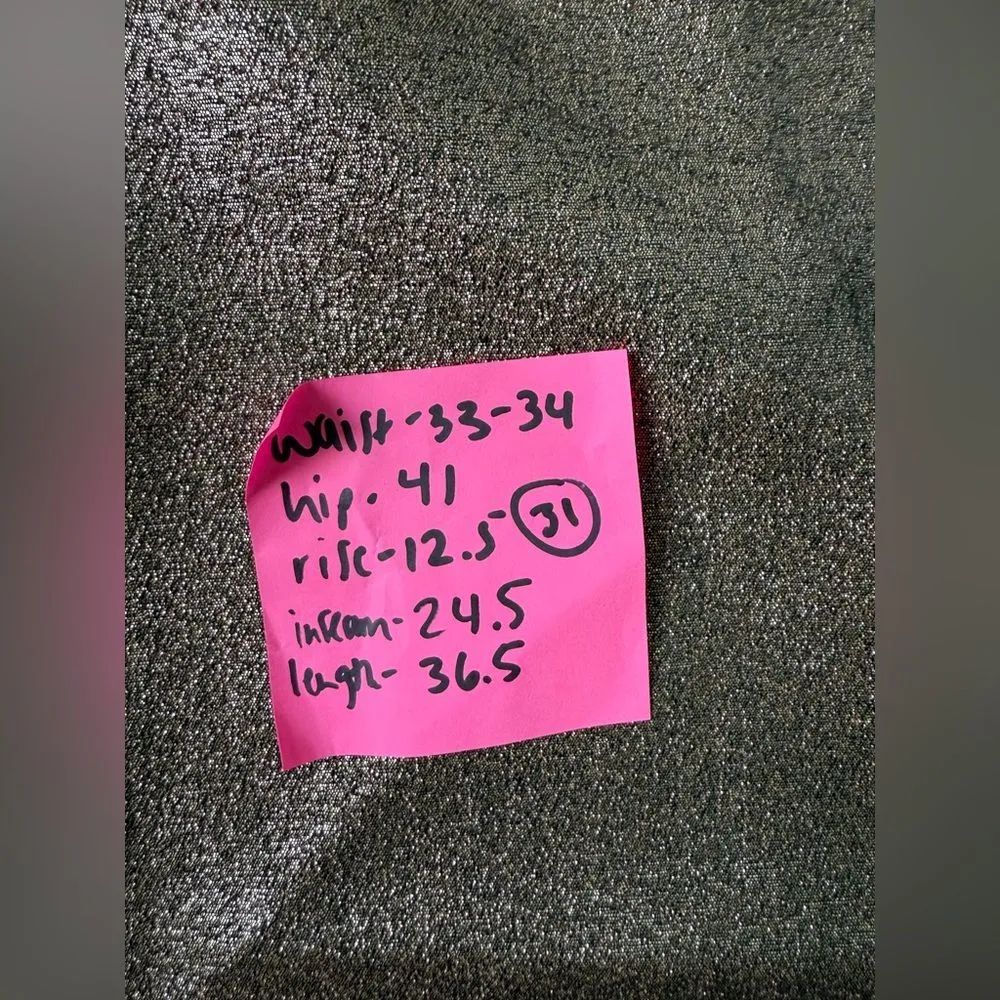 waist-33-34
hip. 41
rise-12.5 31
inseam-24.5
length-36.5